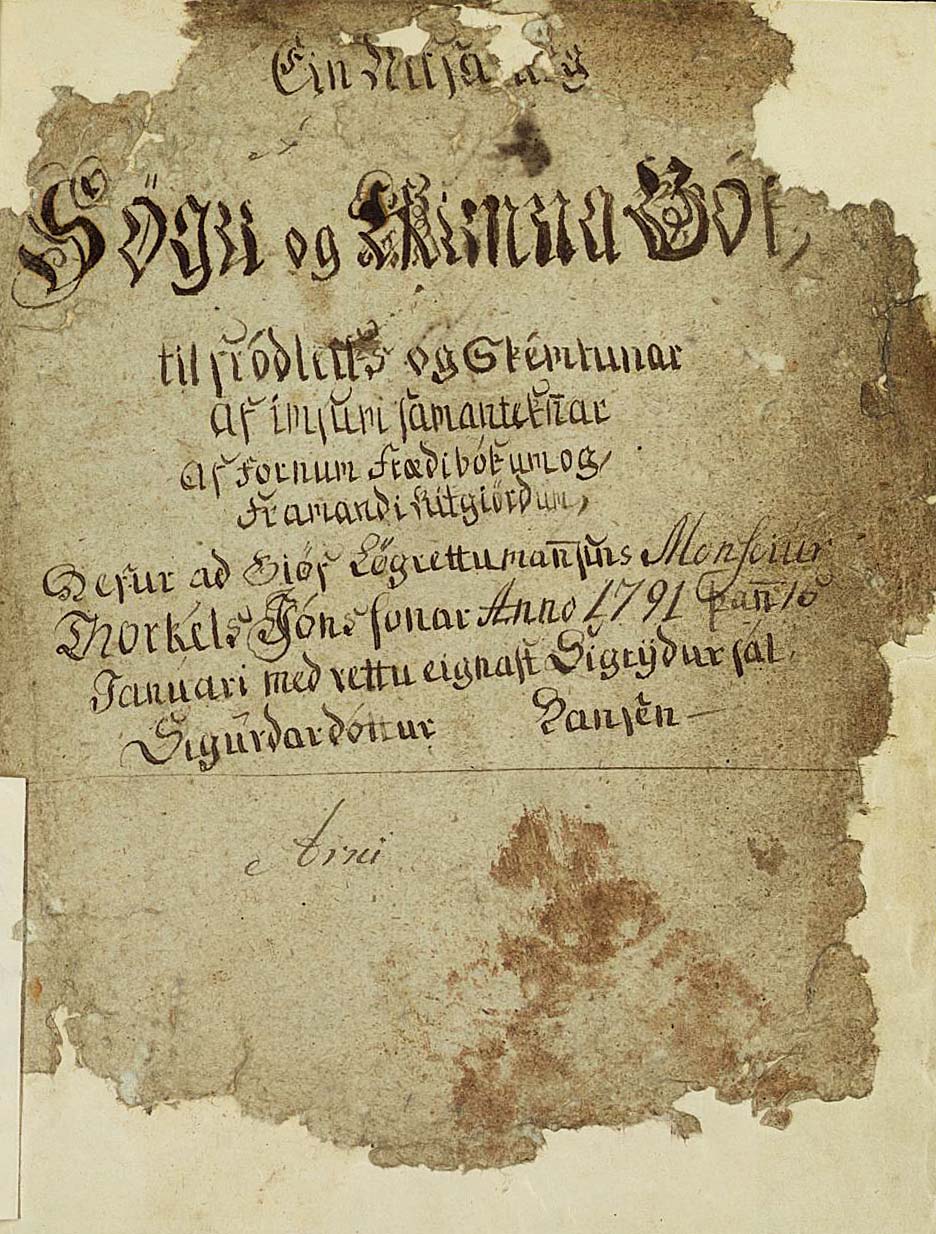 Ein
Sögu og Rimna Bók,
til fródleiks og Skémtunar
af imsum samanteknar
af Fornum Frædibókum og
Framandi Ritgiördum,
Hefur ad Giöf Lögrettumañsins Monseiur
Thorkels Jóns sonar Anno 1791 þañ 16
Januari med rettu eignast Sigrÿdur sál.
Sigurdardóttur Hansen —
Arni